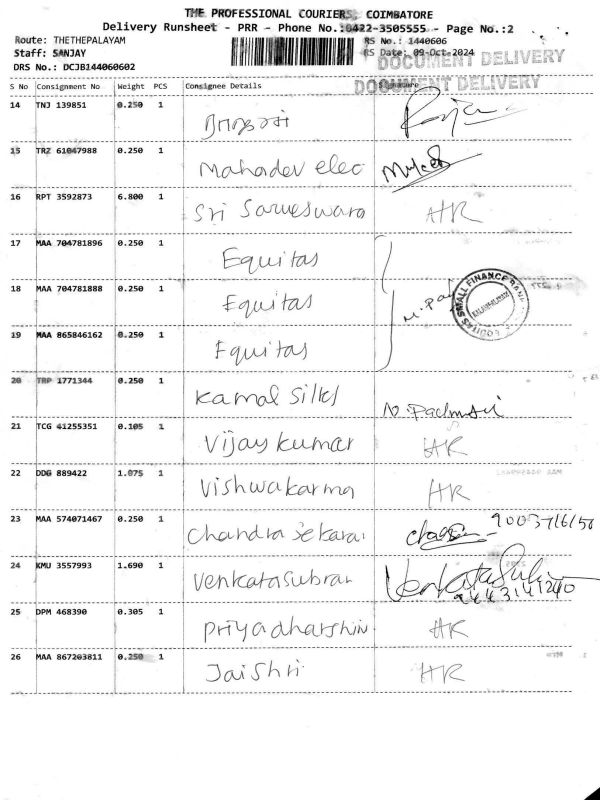 THE PROFESSIONAL COURIERS, COIMBATORE
Delivery Runsheet - PRR - Phone No.:0422-3505555 - Page No.:2
Route: THETHEPALAYAM RS No.: 1440606
Staff: SANJAY RS Date: 09-Oct-2024
DOCUMENT DELIVERY
DRS No.: DCJB144060602
DOCUMENT DELIVERY
S No Consignment No Weight PCS Consignee Details Signature
14 TNJ 139851 0.250 1
15 TRZ 61047988 0.250 1 Mahadev elec
16 RPT 3592873 6.800 1 Sri Sarveswara HR
17 MAA 704781896 0.250 1 Equitas
18 MAA 704781888 0.250 1 Equitas
EQUITAS SMALL FINANCE BANK
19 MAA 865846162 0.250 1 Equitas
20 TRP 1771344 0.250 1 Kamal Silks
21 TCG 41255351 0.105 1 Vijay kumar HR
22 DDG 889422 1.075 1 Vishwakarma HR
23 MAA 574071467 0.250 1 Chandra Sekarai
24 KMU 3557993 1.690 1 Venkatasubran
9443141240
25 DPM 468390 0.305 1 Priyadharshin HR
26 MAA 867203811 0.250 1 Jaishri HR